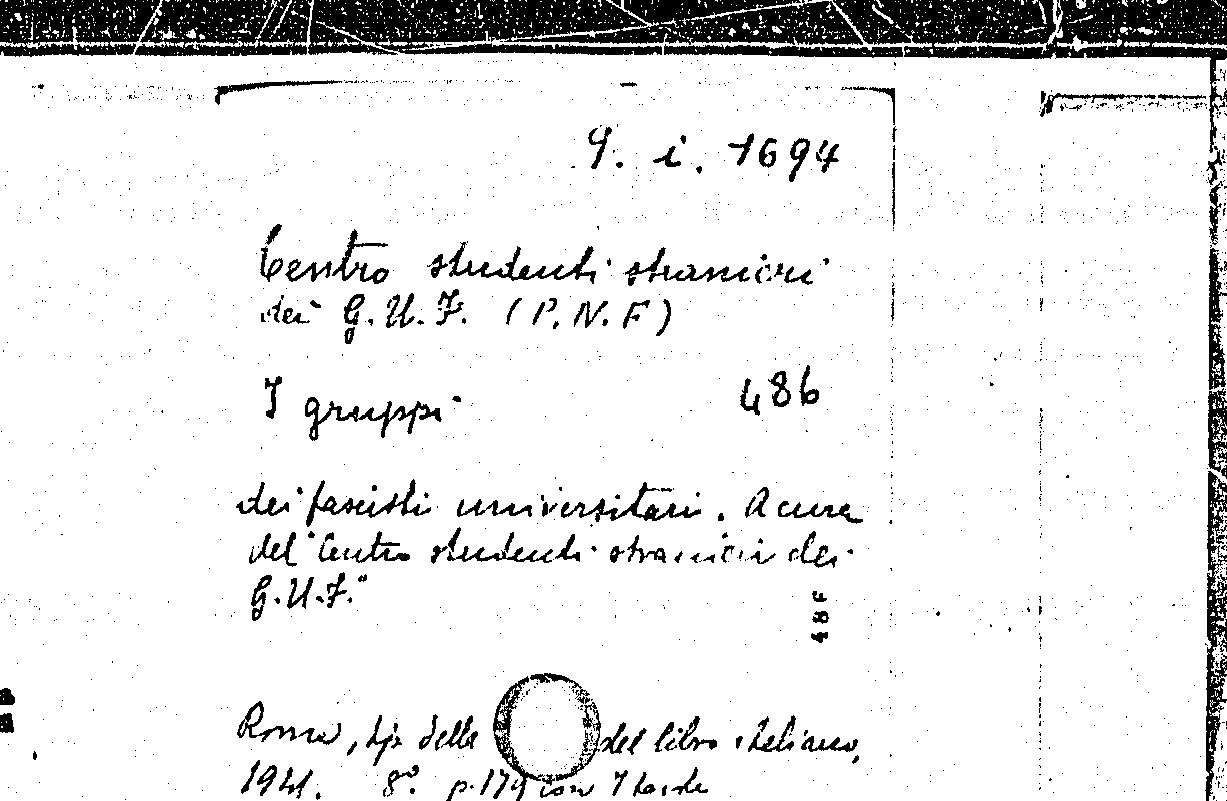 9. i. 1694
Centro studenti stranieri
dei G.U.F. (P.N.F)
I gruppi 486
dei fascisti universitari. A cura
del "Centro studenti stranieri dei
G.U.F."
486
Roma, tip. delle del libro italiano,
1941. 8° p. 179 con 7 tavole